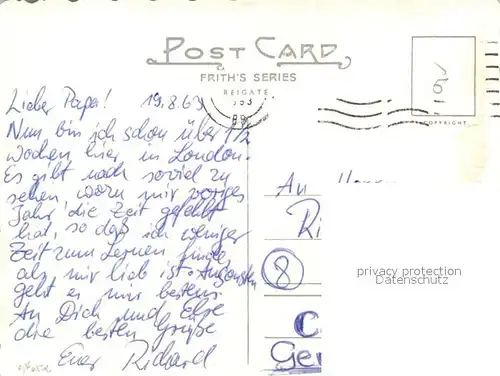 POST CARD
FRITH'S SERIES
REIGATE
Lieber Papa! 19.8.69
Nun bin ich schon über 1 1/2
Wochen hier in London.
Es gibt noch soviel zu
sehen, wozu mir voriges
Jahr, die Zeit gefehlt
hat, so daß ich weniger
Zeit zum Lernen finde
als mir lieb ist. Ansonsten
geht es mir bestens.
An Dich und Else
die besten Grüße
Euer Richard
COPYRIGHT
An
Ri
8
privacy protection
Datenschutz
C
Ger